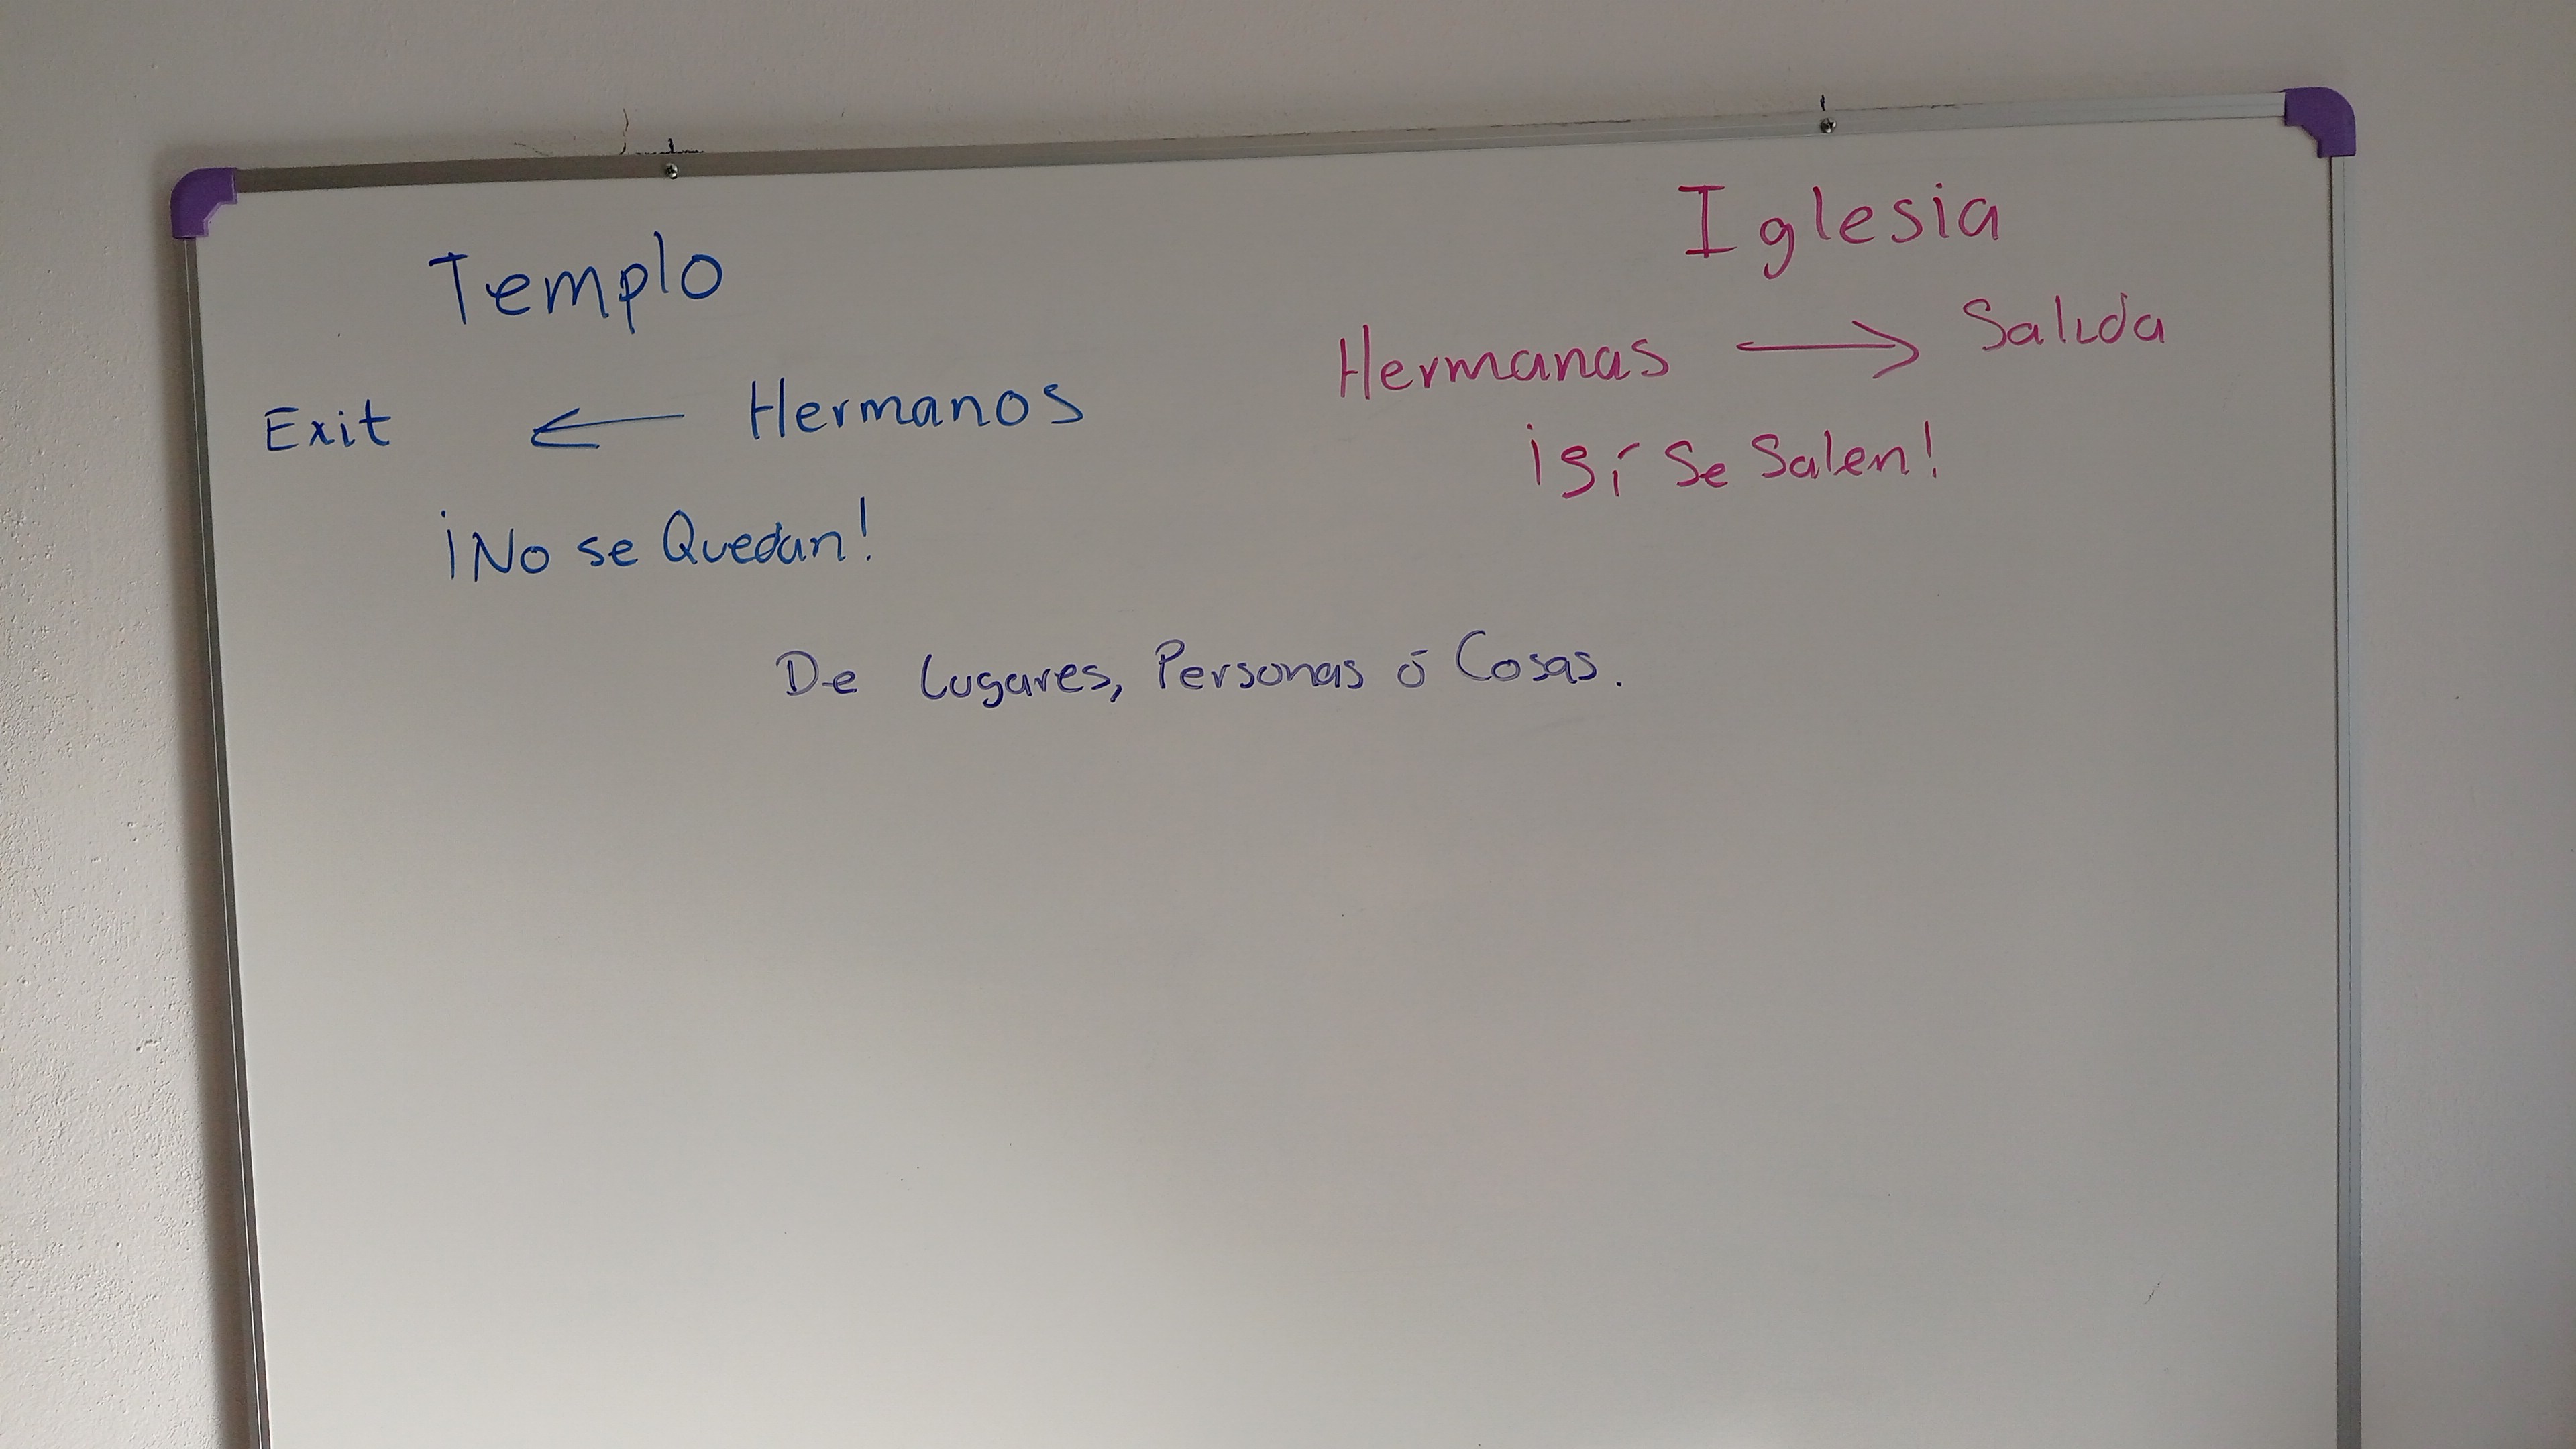 Templo
Exit ← Hermanos
¡No se Quedan!
Iglesia
Hermanas → Salida
¡Sí Se Salen!
De Lugares, Personas ó Cosas.